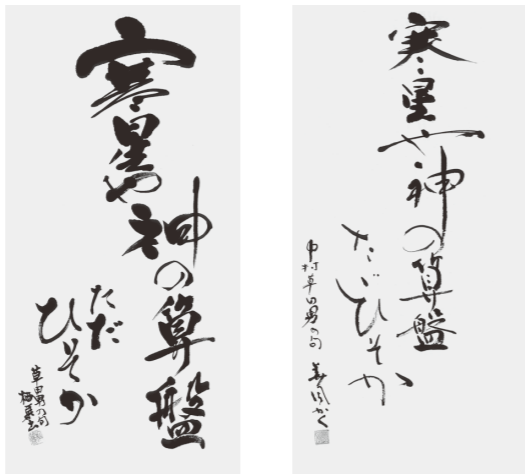 寒星や神の算盤
ただ
ひそか
草田男の句
寒星や神の算盤
たゞひそか
中村草田男の句